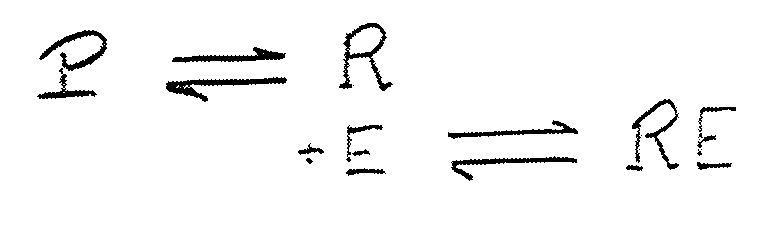 P ⇌ R
+ E ⇌ RE